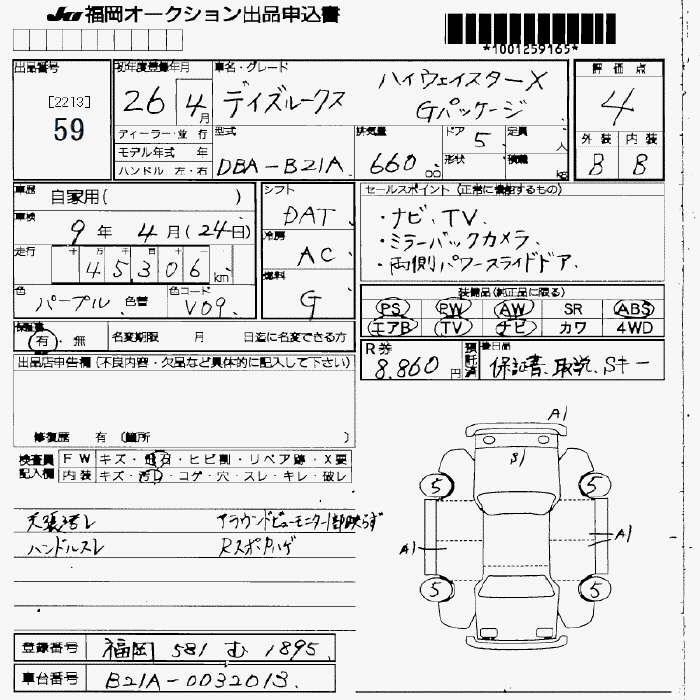 JU 福岡オークション出品申込書
*1001259165*
出品番号
[2213]
59
初年度登録年月
26 4月
車名・グレード
デイズルークス ハイウェイスターX
Gパッケージ
評価点
4
外装 内装
B B
ディーラー・並行
モデル年式 年
ハンドル 左・右
型式
DBA-B21A
排気量
660 cc
ドア 5
形状
定員 人
積載 kg
車歴
自家用( )
車検
9年 4月(24日)
走行
十 万 千 百 十 一
45306 km
色
パープル 色替
色コード
V09
シフト
DAT
冷房
AC
燃料
G
セールスポイント(正常に機能するもの)
・ナビ、TV、
・ミラーバックカメラ、
・両側パワースライドドア、
装備品(純正品に限る)
PS PW AW SR ABS
エアB TV ナビ カワ 4WD
保証書
有・無
名変期限 月 日迄に名変できる方
R券
8.860円
預託済
後日品
保証書、取説、Sキー
出品店申告欄(不良内容・欠品など具体的に記入して下さい)
修復歴 有(箇所 )
検査員 FW キズ・飛石・ヒビ割・リペア跡・X要
記入欄 内装 キズ・汚レ・コゲ・穴・スレ・キレ・破レ
天張汚レ アラウンドビューモニター1部映らず
ハンドルスレ Rスポイハゲ
A1
B1
5 5
A1 A1
A1
5 5
登録番号 福岡 581 む 1895
車台番号 B21A-0032013